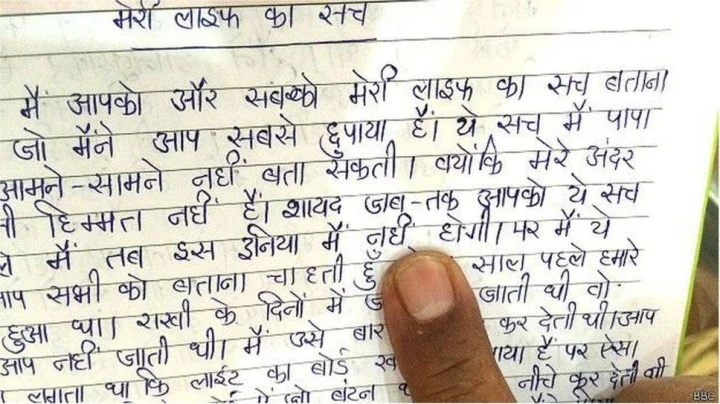 मेरी लाइफ का सच
मैं आपको और सबको मेरी लाइफ का सच बताना
जो मैंने आप सबसे छुपाया हैं। ये सच मैं पापा
आमने-सामने नहीं बता सकती। क्योंकि मेरे अंदर
हिम्मत नहीं हैं। शायद जब-तक आपको ये सच
मैं तब इस दुनिया में नहीं होगी। पर मैं ये
सभी को बताना चाहती साल पहले हमारे
हुआ था। राखी के दिनों में जाती थी वो
आप नहीं जाती थी। मैं उसे बार कर देती थी। आप
लगता था कि लाईट का बोर्ड हैं पर ऐसा
बटन नीचे कर देती
BBC